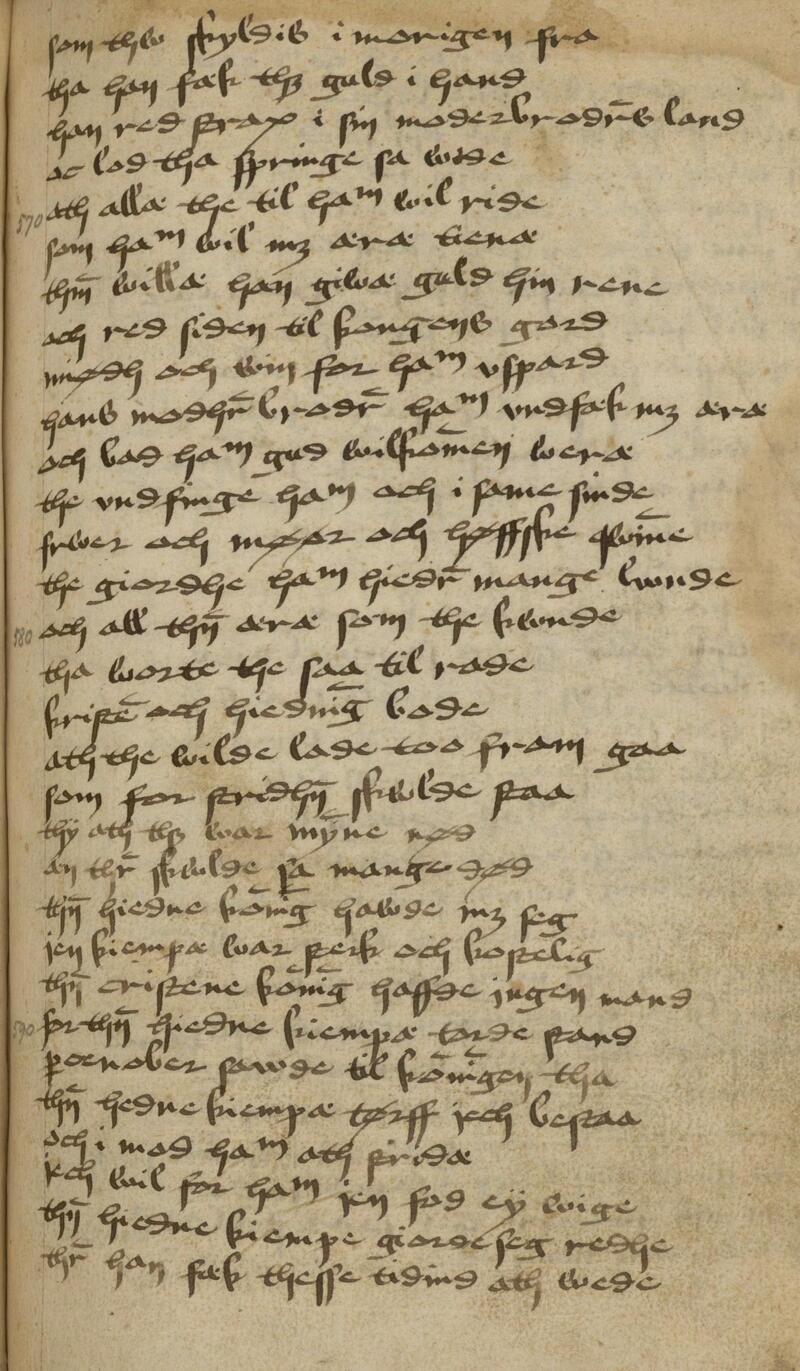 som thw skyldis i morigen fra
tha han fæk thꝫ guld i hand
han red strax i sin moderbrodr̄s land
oc lod tha springe sa wide
570 ath allæ the til haᵐ wil ride
som haᵐ wil mꝫ æræ tienæ
thn̄ willæ han giwæ guld hin rene
och red siden til kongens gard
miødh och win for haᵐ vspard
hans modhr̄brodr̄ haᵐ vndfæk mꝫ æræ
och bad haᵐ gud wilkōmen weræ
the vndfinge haᵐ och i same sinde
frwer och møør och høffske qwin̄e
the giordhe haᵐ hiedr̄ mange lwnde
580 och all thn̄ æræ som the kwnde
tha worte the saa til rade
kristē och hiednīg bode
ath the wilde lade too fram gaa
som for stridhn̄ skwlde staa
thÿ ath thꝫ war mȳne nød
æn thr̄ skwlde sa mange død
thn̄ hiedne kōnīg hawde mꝫ seg
jen kiempæ war sterk och kostelig
thn̄ cristene kōnīg haffde jngen mand
590 for thn̄ hiedne kiempæ torde stand
penober sawde til kōnīgen tha
thn̄ hedne kiempæ tørff jech bestaa
och i mod haᵐ ath stridæ
jech wil for haᵐ jen fod eÿ wige
thn̄ hiedne kiempe giorde seg redhe
thr̄ han fæk thesse tidind ath wede